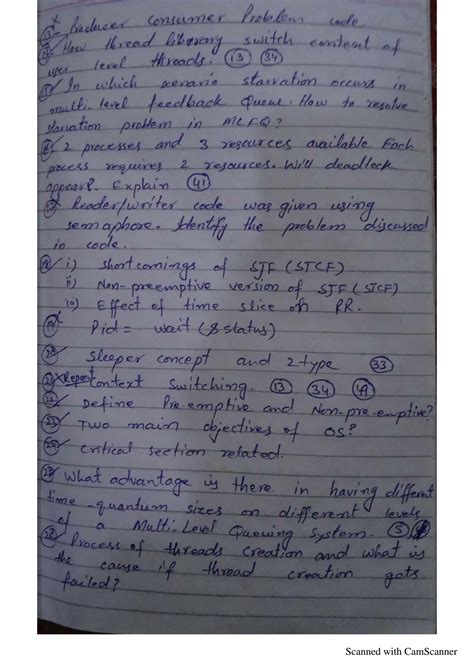 Producer Consumer Problem code
How thread library switch context of
user level threads. 13 34
In which scenario starvation occurs in
multi-level feedback Queue. How to resolve
starvation problem in MLFQ?
2 processes and 3 resources available Each
process requires 2 resources. Will deadlock
appear?. Explain 41
Reader/writer code was given using
semaphore. Identify the problem discussed
in code.
i) Short comings of SJF (STCF)
ii) Non-preemptive version of SJF (STCF)
iii) Effect of time slice on RR.
Pid = wait (&status)
Sleeper concept and 2 type 33
Repeat Context Switching. 13 34 49
Define Pre emptive and Non-pre-emptive?
Two main objectives of OS?
Critical section related.
What advantage is there in having different
time-quantum sizes on different levels
of a Multi-Level Queuing System. 5
Process of threads creation and what is
the cause if thread creation gets
failed?
Scanned with CamScanner